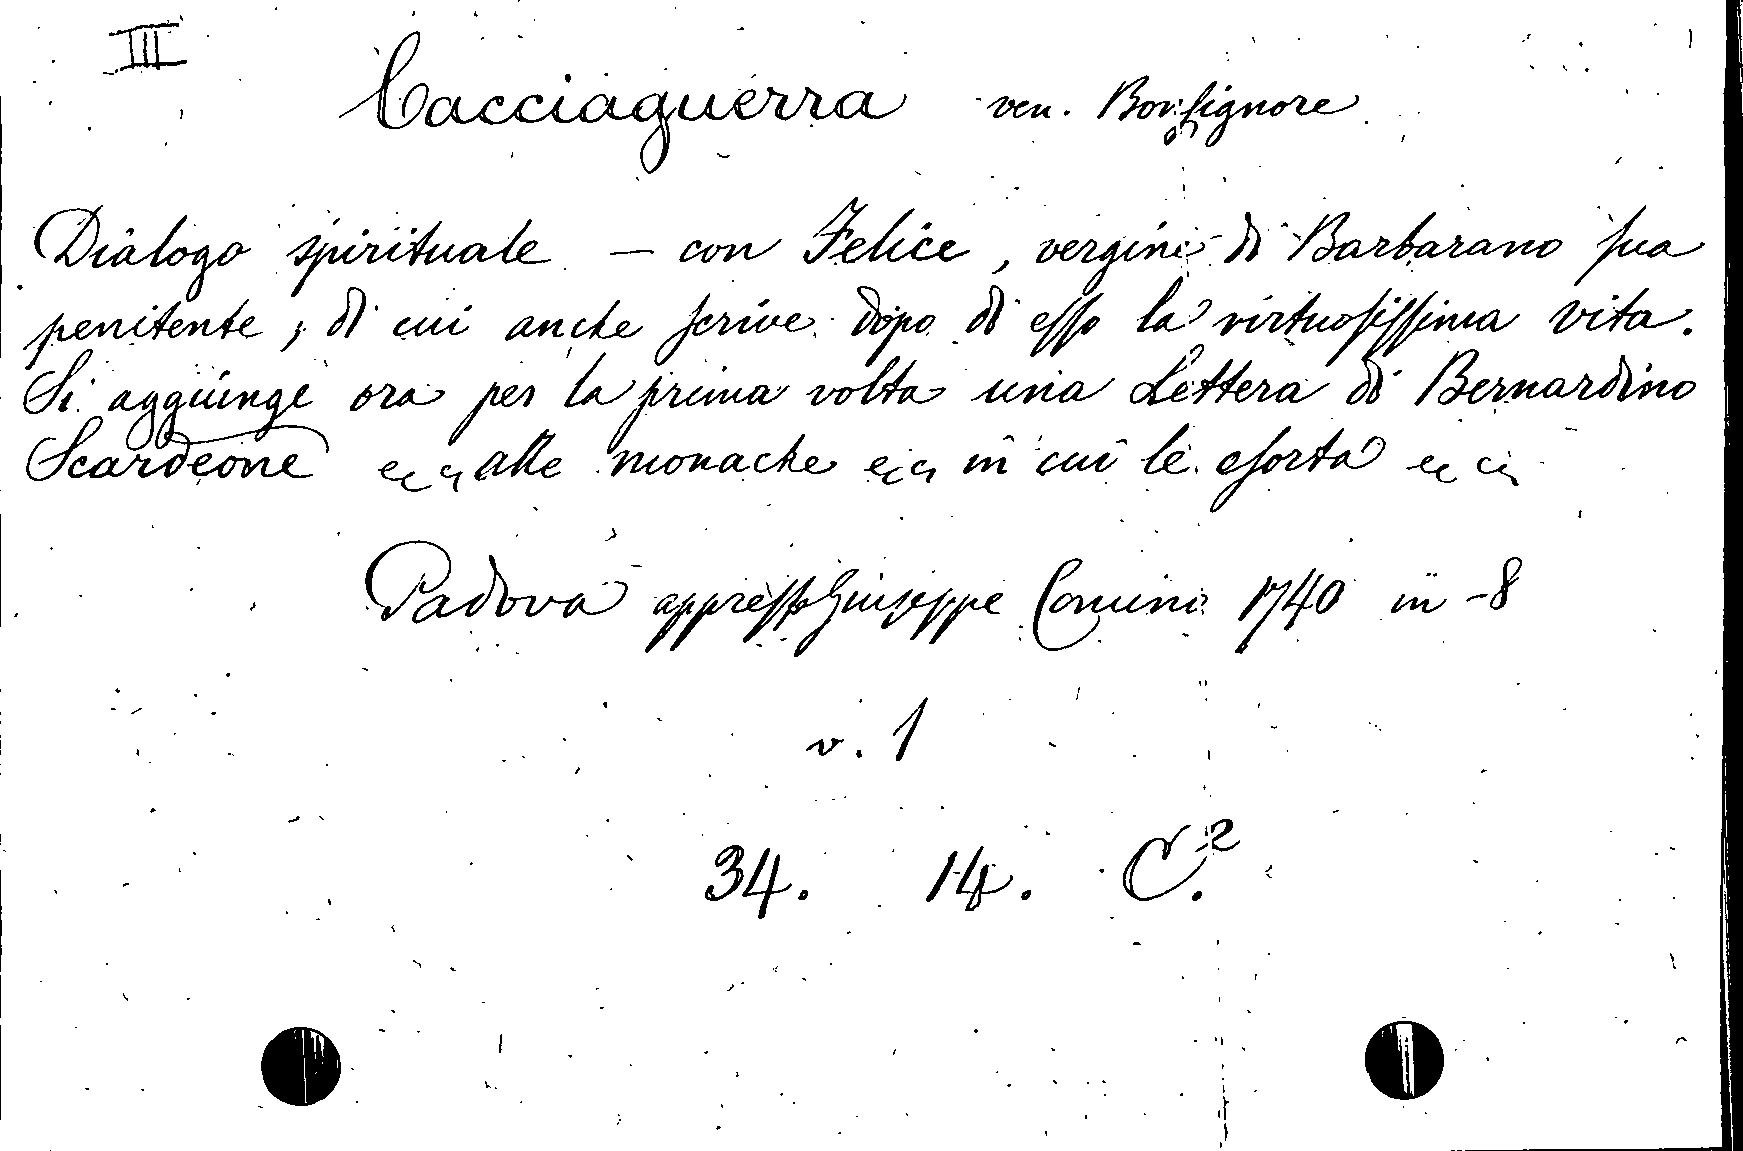 III
Cacciaguerra ven. Bonsignore
Dialogo spirituale — con Felice, vergine di Barbarano sua
penitente, di cui anche scrive dopo di esso la virtuosissima vita.
Si aggiunge ora per la prima volta una Lettera di Bernardino
Scardeone ecc alle monache ecc in cui le esorta ecc
Padova appresso Giuseppe Comino 1740 in -8
v. 1
34. 14. C.²